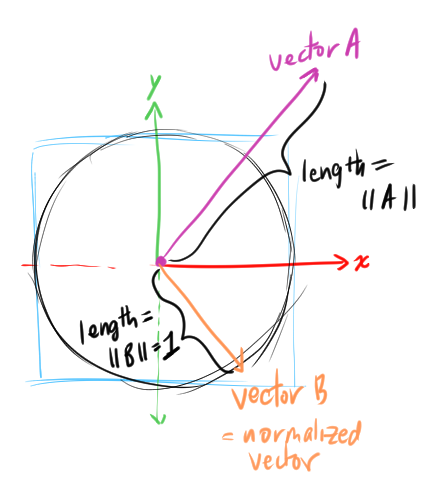 vector A
y
length =
||A||
x
length =
||B||=1
vector B
= normalized
vector